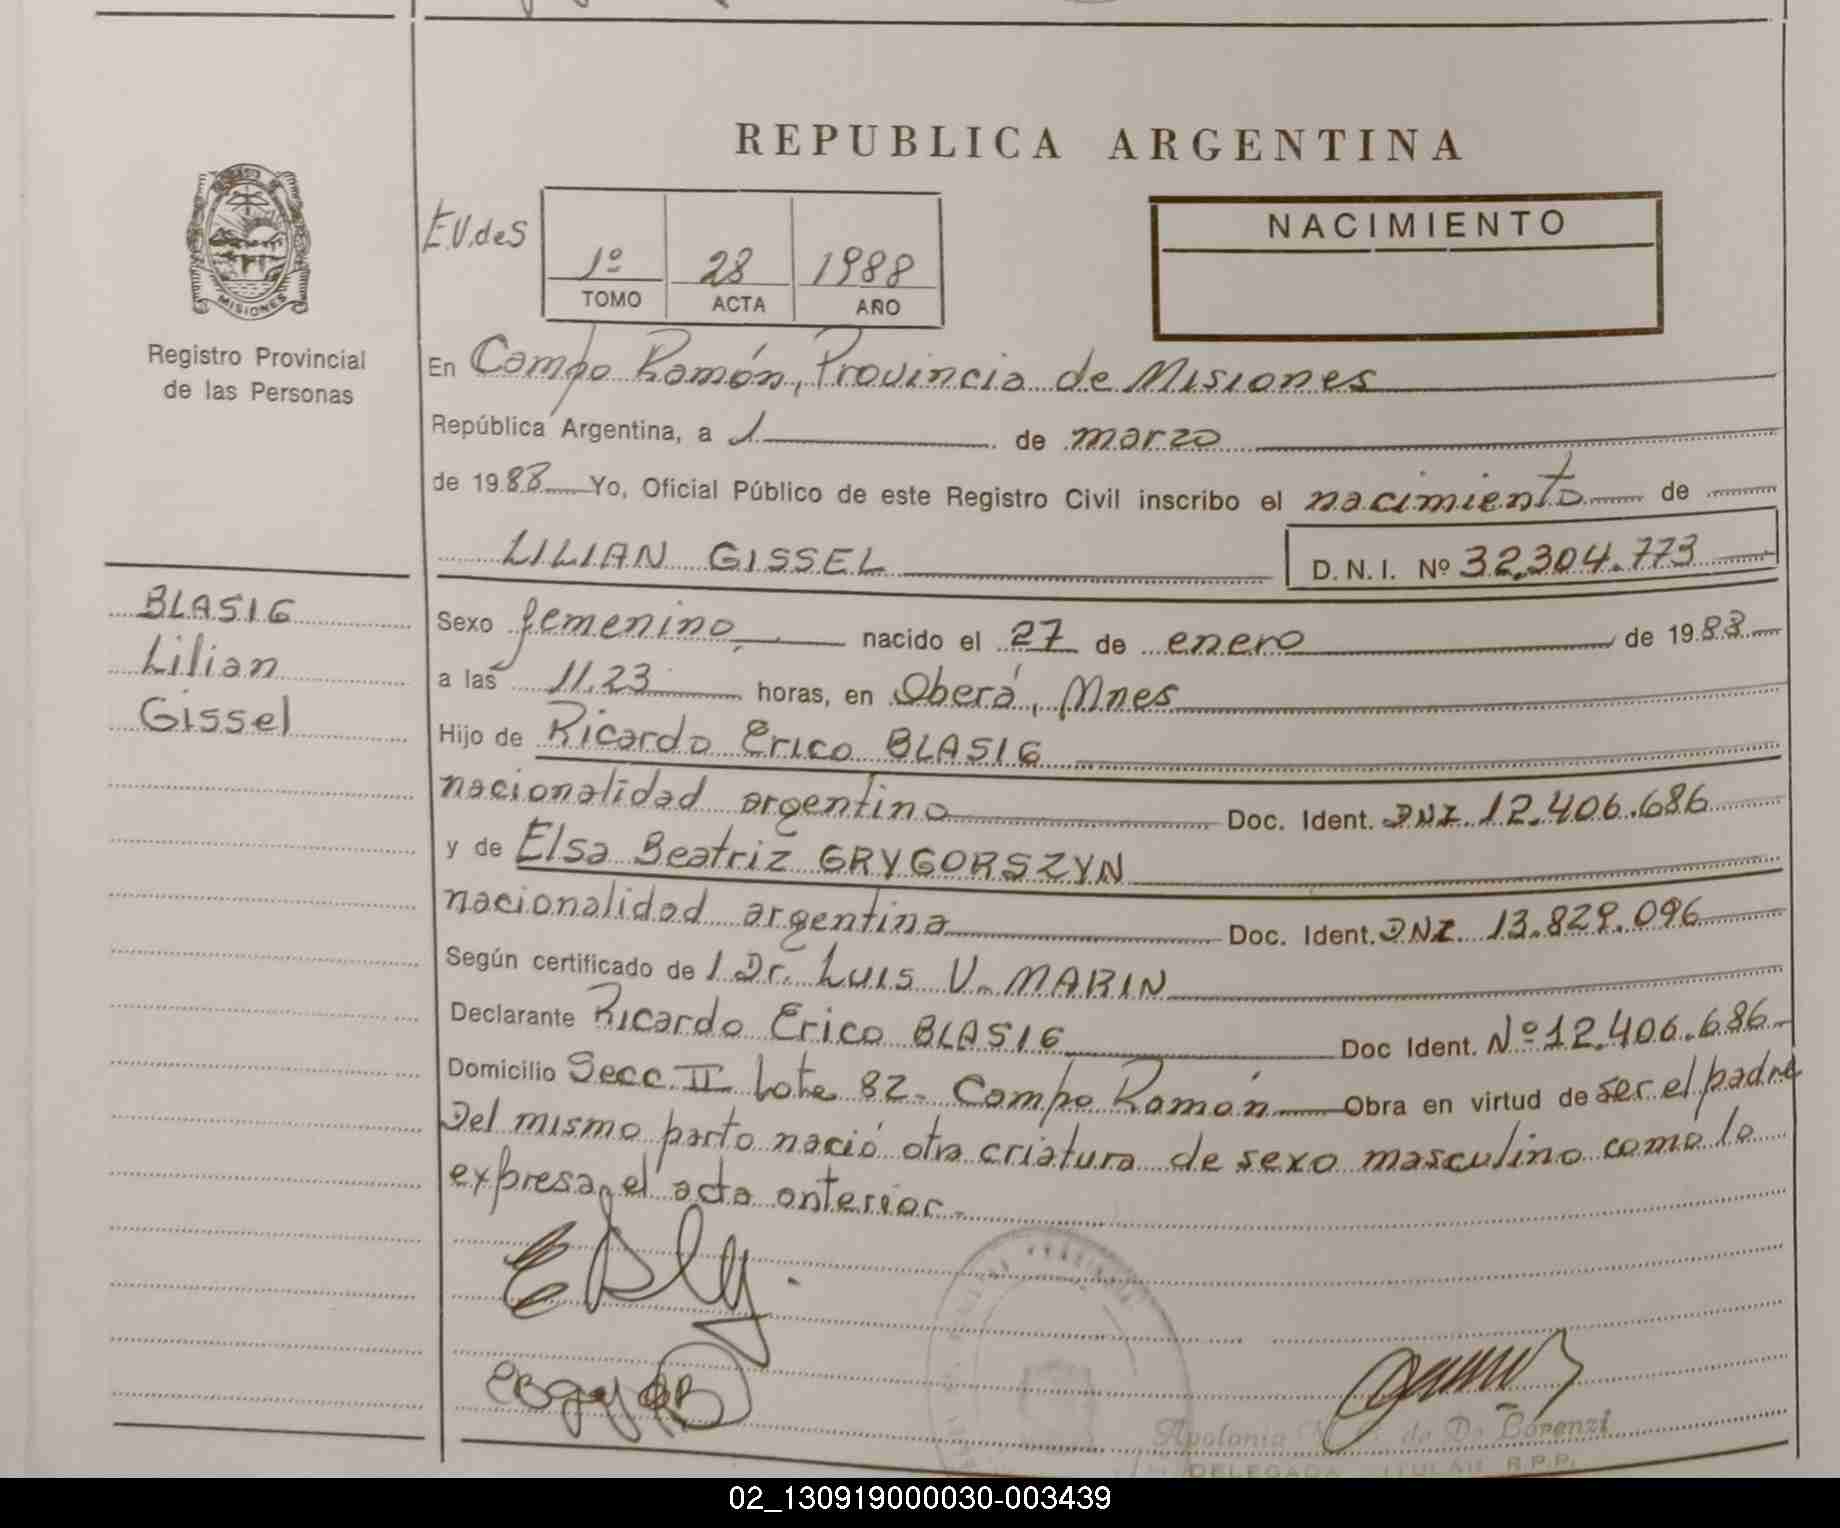 REPUBLICA ARGENTINA
MISIONES
Registro Provincial
de las Personas
E.V.deS
1º 28 1988
TOMO ACTA AÑO
NACIMIENTO
En Campo Ramón, Provincia de Misiones
República Argentina, a 1 de marzo
de 1988 Yo, Oficial Público de este Registro Civil inscribo el nacimiento de
LILIAN GISSEL D.N.I. Nº 32.304.773
BLASIG
Lilian
Gissel
Sexo femenino, nacido el 27 de enero de 1988
a las 11.23 horas, en Oberá, Mnes
Hijo de Ricardo Erico BLASIG
nacionalidad argentino Doc. Ident. DNI. 12.406.686
y de Elsa Beatriz GRYGORSZYN
nacionalidad argentina Doc. Ident. DNI. 13.829.096
Según certificado de l Dr. Luis V. MARIN
Declarante Ricardo Erico BLASIG Doc Ident. Nº 12.406.686
Domicilio Secc. II Lote 82- Campo Ramón Obra en virtud de ser el padre
Del mismo parto nació otra criatura de sexo masculino como lo
expresa el acta anterior.
Apolonia de De Lorenzi
DELEGADA TITULAR R.P.P.
02_130919000030-003439